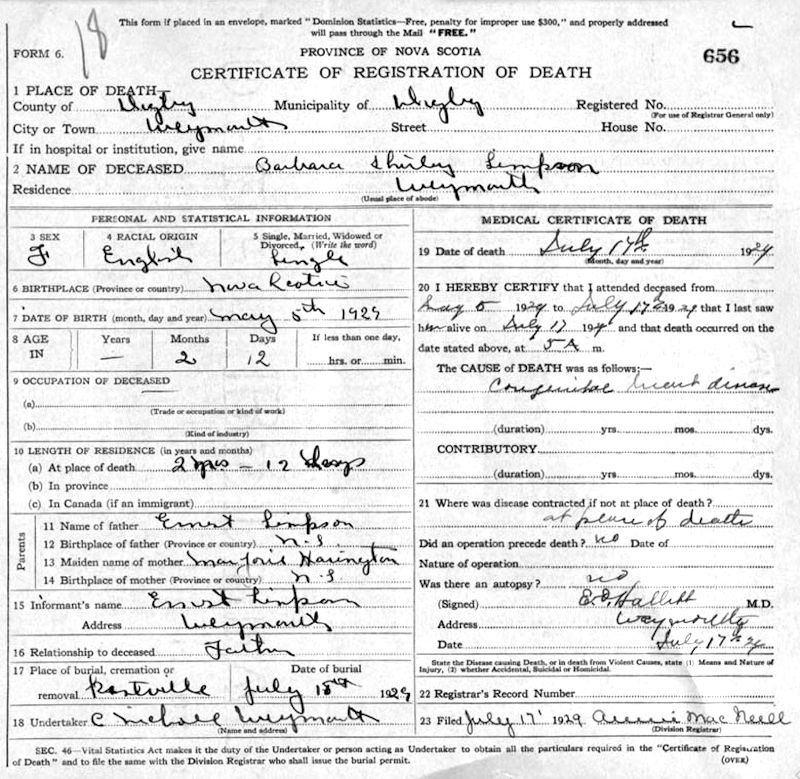 18
This form if placed in an envelope, marked "Dominion Statistics—Free, penalty for improper use $300," and properly addressed
will pass through the Mail "FREE."
FORM 6.
PROVINCE OF NOVA SCOTIA
656
CERTIFICATE OF REGISTRATION OF DEATH
1 PLACE OF DEATH—
County of Digby Municipality of Digby Registered No.
(For use of Registrar General only)
City or Town Weymouth Street House No.
If in hospital or institution, give name
2 NAME OF DECEASED Barbara Shirley Simpson
Residence Weymouth
(Usual place of abode)
PERSONAL AND STATISTICAL INFORMATION
3 SEX 4 RACIAL ORIGIN 5 Single, Married, Widowed or
Divorced, (Write the word)
F English Single
6 BIRTHPLACE (Province or country) Nova Scotia
7 DATE OF BIRTH (month, day and year) May 5th 1929
8 AGE Years Months Days If less than one day,
IN — 2 12 hrs. or min.
9 OCCUPATION OF DECEASED
(a)
(Trade or occupation or kind of work)
(b)
(Kind of industry)
10 LENGTH OF RESIDENCE (in years and months)
(a) At place of death 2 mos – 12 Days
(b) In province
(c) In Canada (if an immigrant)
Parents
11 Name of father Ernest Simpson
12 Birthplace of father (Province or country) N.S.
13 Maiden name of mother Marjorie
14 Birthplace of mother (Province or country) N.S.
15 Informant's name Ernest Simpson
Address Weymouth
16 Relationship to deceased Father
17 Place of burial, cremation or Date of burial
removal July 18th 1929
18 Undertaker C Weymouth
(Name and address)
MEDICAL CERTIFICATE OF DEATH
19 Date of death July 17th 1929
(Month, day and year)
20 I HEREBY CERTIFY that I attended deceased from
May 5 1929 to July 17 1929 that I last saw
h alive on July 17 192 and that death occurred on the
date stated above, at 5 A m.
The CAUSE OF DEATH was as follows:—
Congenital heart disease
(duration) yrs. mos. dys.
CONTRIBUTORY
(duration) yrs. mos. dys.
21 Where was disease contracted if not at place of death?
at place of death
Did an operation precede death? no Date of
Nature of operation
Was there an autopsy? no
(Signed) Hallett M.D.
Address Weymouth
Date July 17 29
State the Disease causing Death, or in death from Violent Causes, state (1) Means and Nature of
Injury, (2) whether Accidental, Suicidal or Homicidal.
22 Registrar's Record Number
23 Filed July 17 1929 Annie MacNeill
(Division Registrar)
SEC. 46—Vital Statistics Act makes it the duty of the Undertaker or person acting as Undertaker to obtain all the particulars required in the "Certificate of Registration
of Death" and to file the same with the Division Registrar who shall issue the burial permit. (OVER)